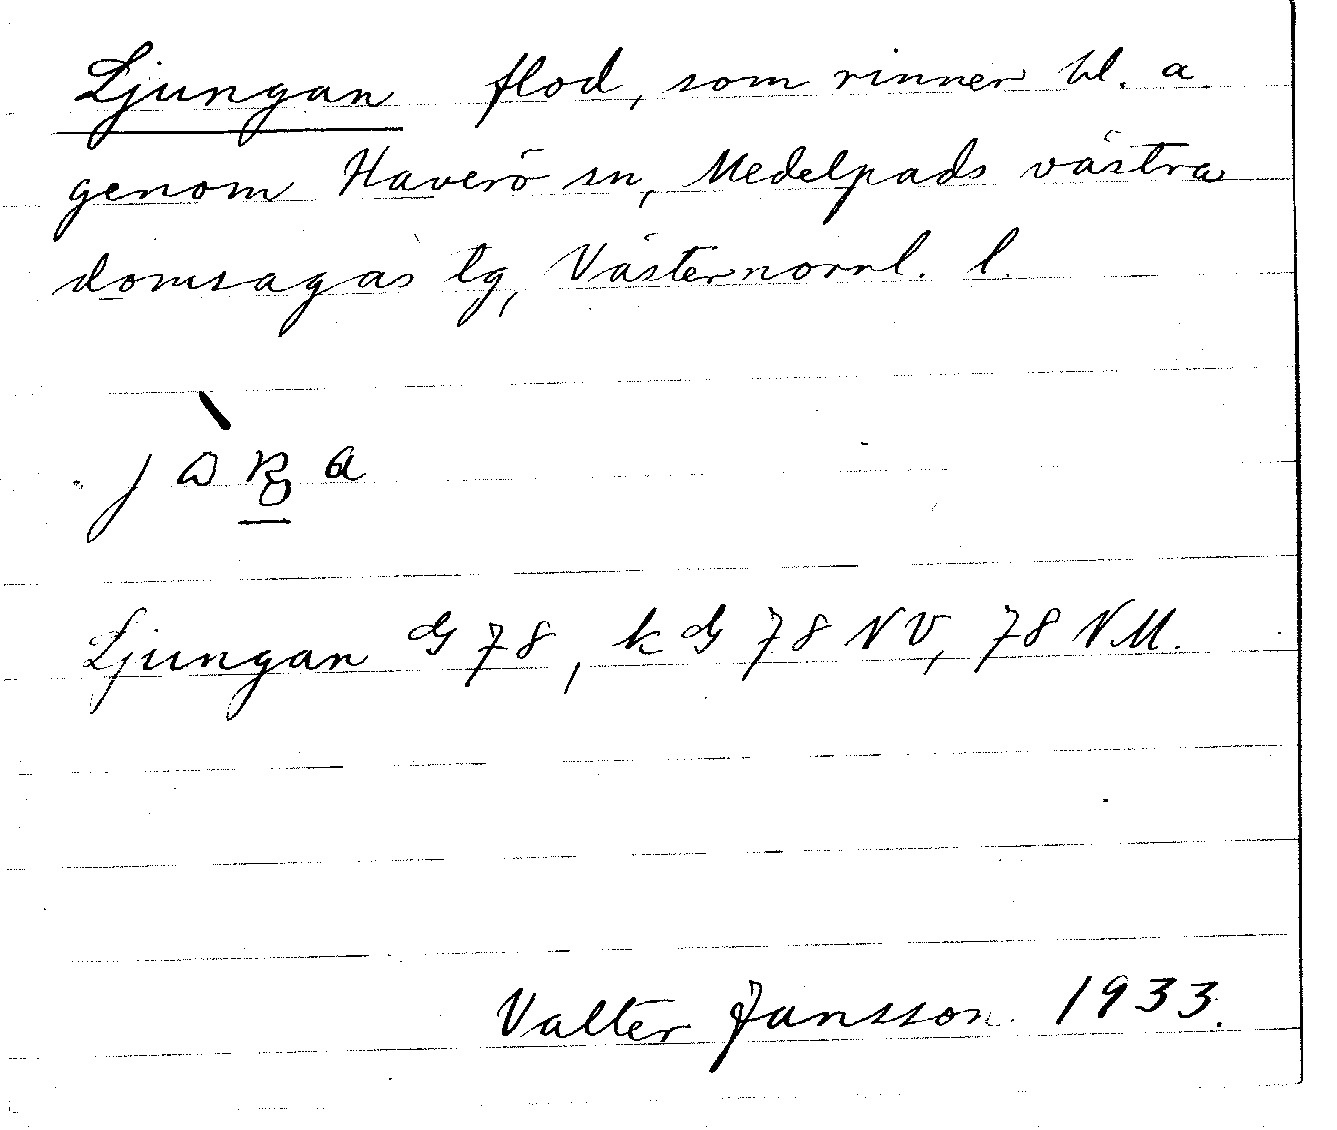 Ljungan flod, som rinner bl. a
genom Haverö sn, Medelpads västra
domsagas tg, Västernorrl. l.
Ljungan G 78, k G 78 NV, 78 NM.
Valter Jansson 1933.